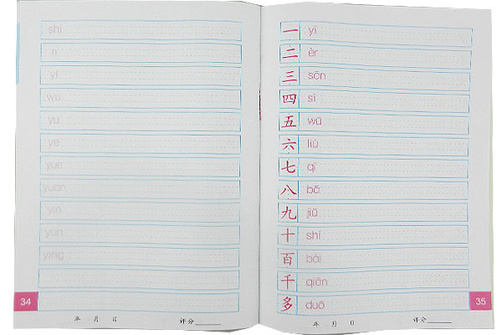 shi
ri
yi
wu
yu
ye
yue
yuan
yin
yun
ying
34
年 月 日 评分
一 yī
二 èr
三 sān
四 sì
五 wǔ
六 liù
七 qī
八 bā
九 jiǔ
十 shí
百 bǎi
千 qiān
多 duō
35
年 月 日 评分